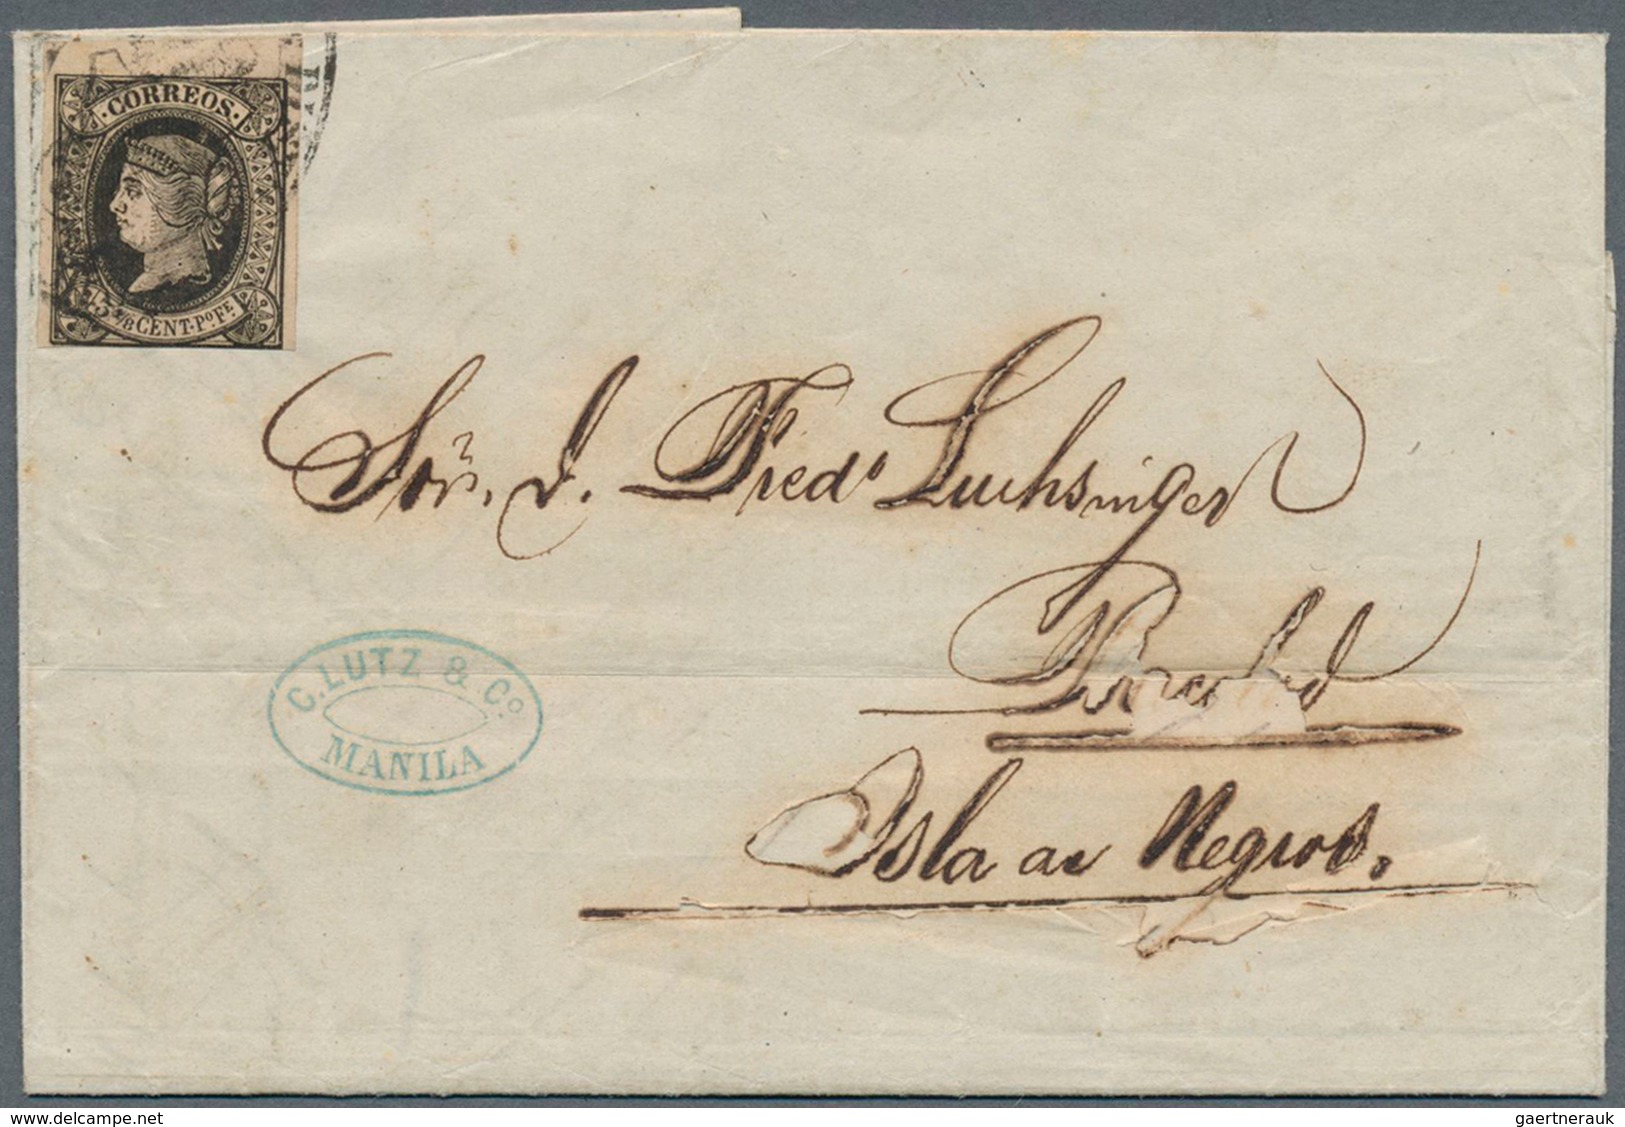 CORREOS.
3 1/8 CENT. Po. FE.
Sōr. d. Fredo Luchsinger
Isla de Negros.
C. LUTZ & Co.
MANILA
www.delcampe.net
gaertnerauk